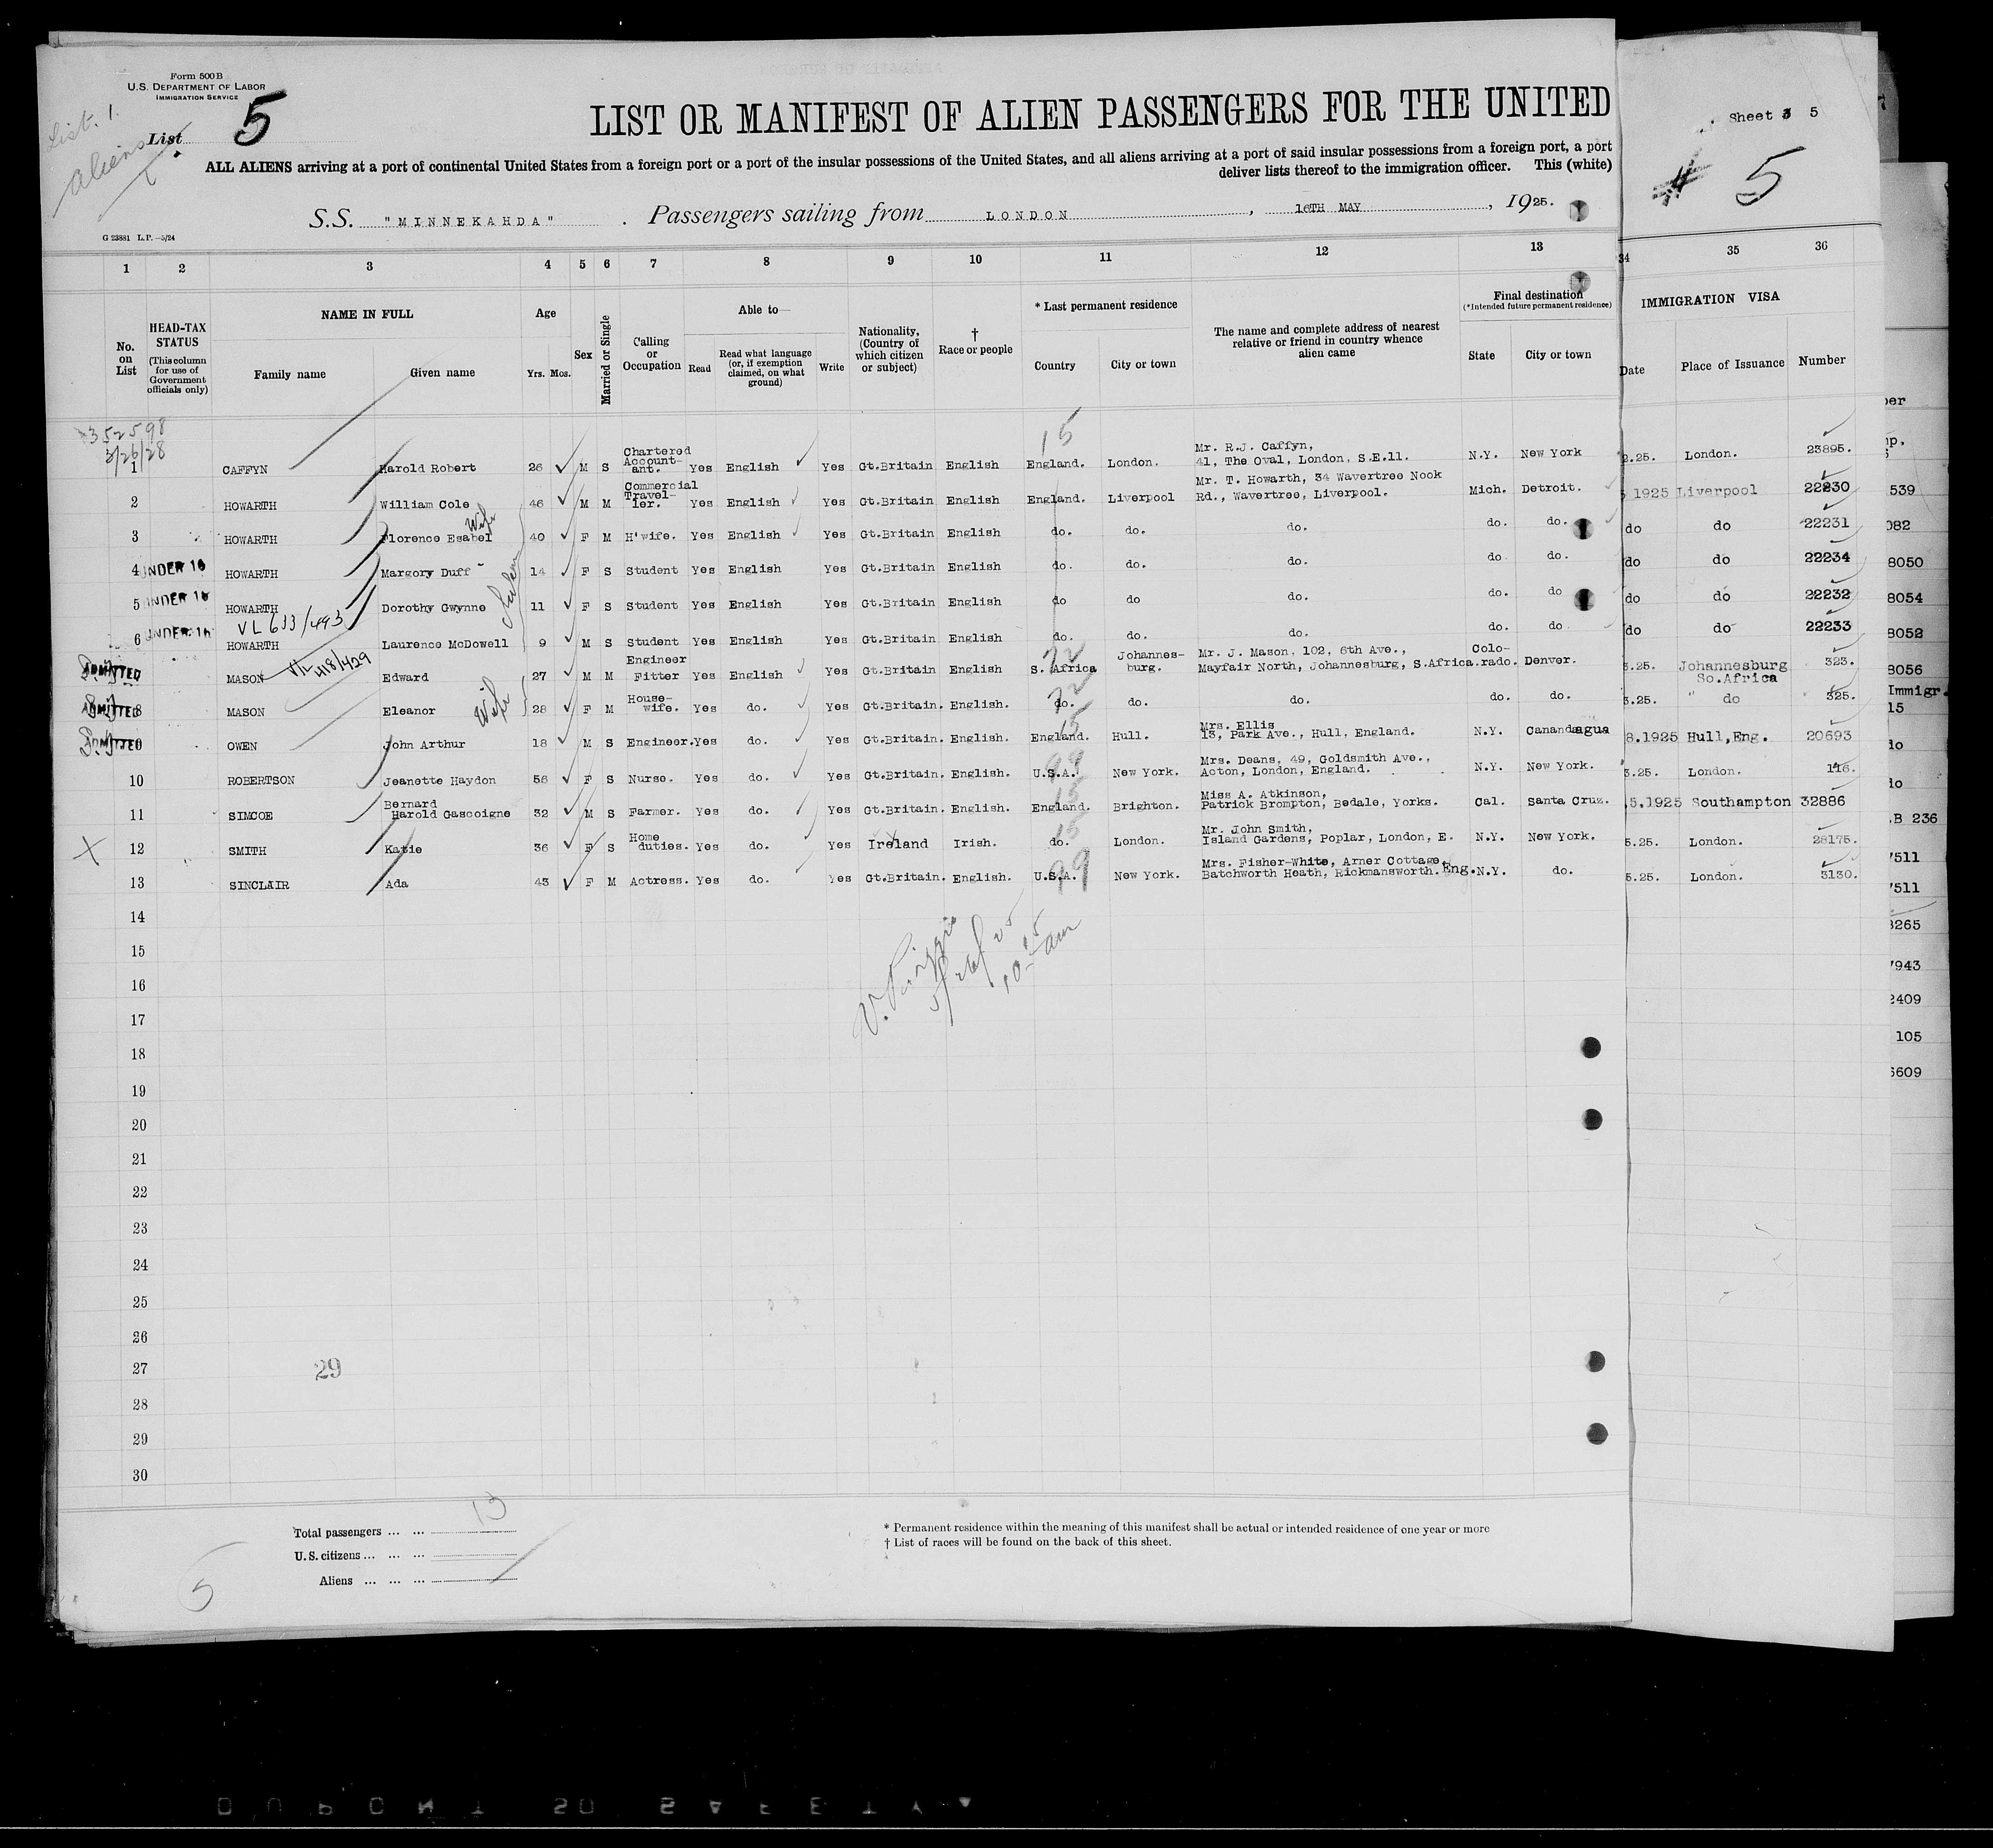 Form 500B
U.S. DEPARTMENT OF LABOR
IMMIGRATION SERVICE
List. 1.
aliens
List 5
LIST OR MANIFEST OF ALIEN PASSENGERS FOR THE UNITED
Sheet 5
# 5
ALL ALIENS arriving at a port of continental United States from a foreign port or a port of the insular possessions of the United States, and all aliens arriving at a port of said insular possessions from a foreign port, a port
deliver lists thereof to the immigration officer. This (white)
S.S. "MINNEKAHDA" . Passengers sailing from LONDON , 16TH MAY , 1925.
G 23881 L.P.—5/24
1 2 3 4 5 6 7 8 9 10 11 12 13 34 35 36
No. on List
HEAD-TAX STATUS
(This column for use of Government officials only)
NAME IN FULL
Family name Given name
Age
Yrs. Mos.
Sex
Married or Single
Calling or Occupation
Able to—
Read
Read what language (or, if exemption claimed, on what ground)
Write
Nationality, (Country of which citizen or subject)
† Race or people
* Last permanent residence
Country City or town
The name and complete address of nearest relative or friend in country whence alien came
Final destination
(*Intended future permanent residence)
State City or town
IMMIGRATION VISA
Date Place of Issuance Number
352598
3/26/28
15
1 CAFFYN Harold Robert 26 M S Chartered Account-ant. Yes English Yes Gt.Britain English England. London. Mr. R.J. Caffyn, 41, The Oval, London, S.E.11. N.Y. New York 2.25. London. 23895.
2 HOWARTH William Cole 46 M M Commercial Travel-ler. Yes English Yes Gt.Britain English England. Liverpool Mr. T. Howarth, 34 Wavertree Nook Rd., Wavertree, Liverpool. Mich. Detroit. 1925 Liverpool 22230
3 HOWARTH Florence Esabel Wife 40 F M H'wife. Yes English Yes Gt.Britain English do. do. do. do. do. do do 22231
4 UNDER 16 HOWARTH Margory Duff 14 F S Student Yes English Yes Gt.Britain English do. do. do. do do. do do 22234
5 UNDER 16 HOWARTH Dorothy Gwynne 11 F S Student Yes English Yes Gt.Britain English do do do. do. do do do 22232
VL 633/493
6 UNDER 16 HOWARTH Laurence McDowell 9 M S Student Yes English Yes Gt.Britain English do. do. do. do. do do do 22233
ADMITTED MASON V/L 418/429 Edward 27 M M Engineer Fitter Yes English Yes Gt.Britain English 72 S. Africa Johannes-burg. Mr. J. Mason, 102, 6th Ave., Mayfair North, Johannesburg, S.Africa. Colo-rado. Denver. 3.25. Johannesburg So.Africa 323.
ADMITTED 8 MASON Eleanor Wife 28 F M House-wife. Yes do. Yes Gt.Britain. English. 72 do. do. do. do. do. 3.25. " do 325.
ADMITTED 9 OWEN John Arthur 18 M S Engineer. Yes do. Yes Gt.Britain. English. 15 England. Hull. Mrs. Ellis 13, Park Ave., Hull, England. N.Y. Canandagua 8.1925 Hull,Eng. 20693
10 ROBERTSON Jeanette Haydon 56 F S Nurse. Yes do. Yes Gt.Britain. English. 99 U.S.A. New York. Mrs. Deans, 49, Goldsmith Ave., Acton, London, England. N.Y. New York. 3.25. London. 116.
11 SIMCOE Bernard Harold Gascoigne 32 M S Farmer. Yes do. Yes Gt.Britain. English. 15 England. Brighton. Miss A. Atkinson, Patrick Brompton, Bedale, Yorks. Cal. Santa Cruz. .5.1925 Southampton 32886
X 12 SMITH Katie 36 F S Home duties. Yes do. Yes Ireland Irish. 15 do. London. Mr. John Smith, Island Gardens, Poplar, London, E. N.Y. New York. 5.25. London. 28175.
13 SINCLAIR Ada 43 F M Actress. Yes do. Yes Gt.Britain. English. 99 U.S.A. New York. Mrs. Fisher-White, Arner Cottage, Batchworth Heath, Rickmansworth. Eng. N.Y. do. 5.25. London. 3130.
14
15
16
17
18
19
20
21
22
23
24
25
26
27 29
28
29
30
13
Total passengers ... ...
U.S. citizens ... ... ...
Aliens ... ... ...
5
* Permanent residence within the meaning of this manifest shall be actual or intended residence of one year or more
† List of races will be found on the back of this sheet.
539
082
8050
8054
8052
8056
Immigr.
15
do
do
.B 236
7511
7511
3265
7943
2409
105
6609
DUPONT SO SAFETY